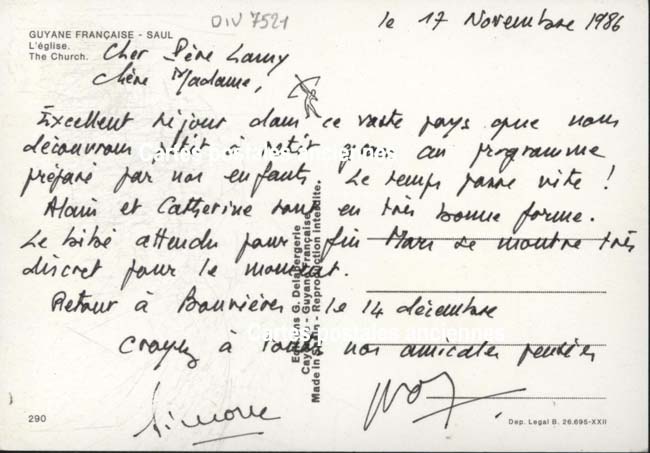 DIV 7521
le 17 Novembre 1986
GUYANE FRANÇAISE - SAUL
L'église.
The Church.
Cher Père Lamy
Chère Madame,
Excellent séjour dans ce vaste pays que nous
découvrons petit à petit grâce au programme
préparé par nos enfants. Le temps passe vite !
Alain et Catherine sont en très bonne forme.
Le bébé attendu pour fin Mars se montre très
discret pour le moment.
Retour à Bouvières le 14 décembre
Croyez à toutes nos amicales pensées
Simone
Editions G. Delabergerie
Cayenne - Guyane Française
Made in Spain - Reproduction interdite.
Cartes postales anciennes
Cartes postales anciennes
290
Dep. Legal B. 26.695-XXII